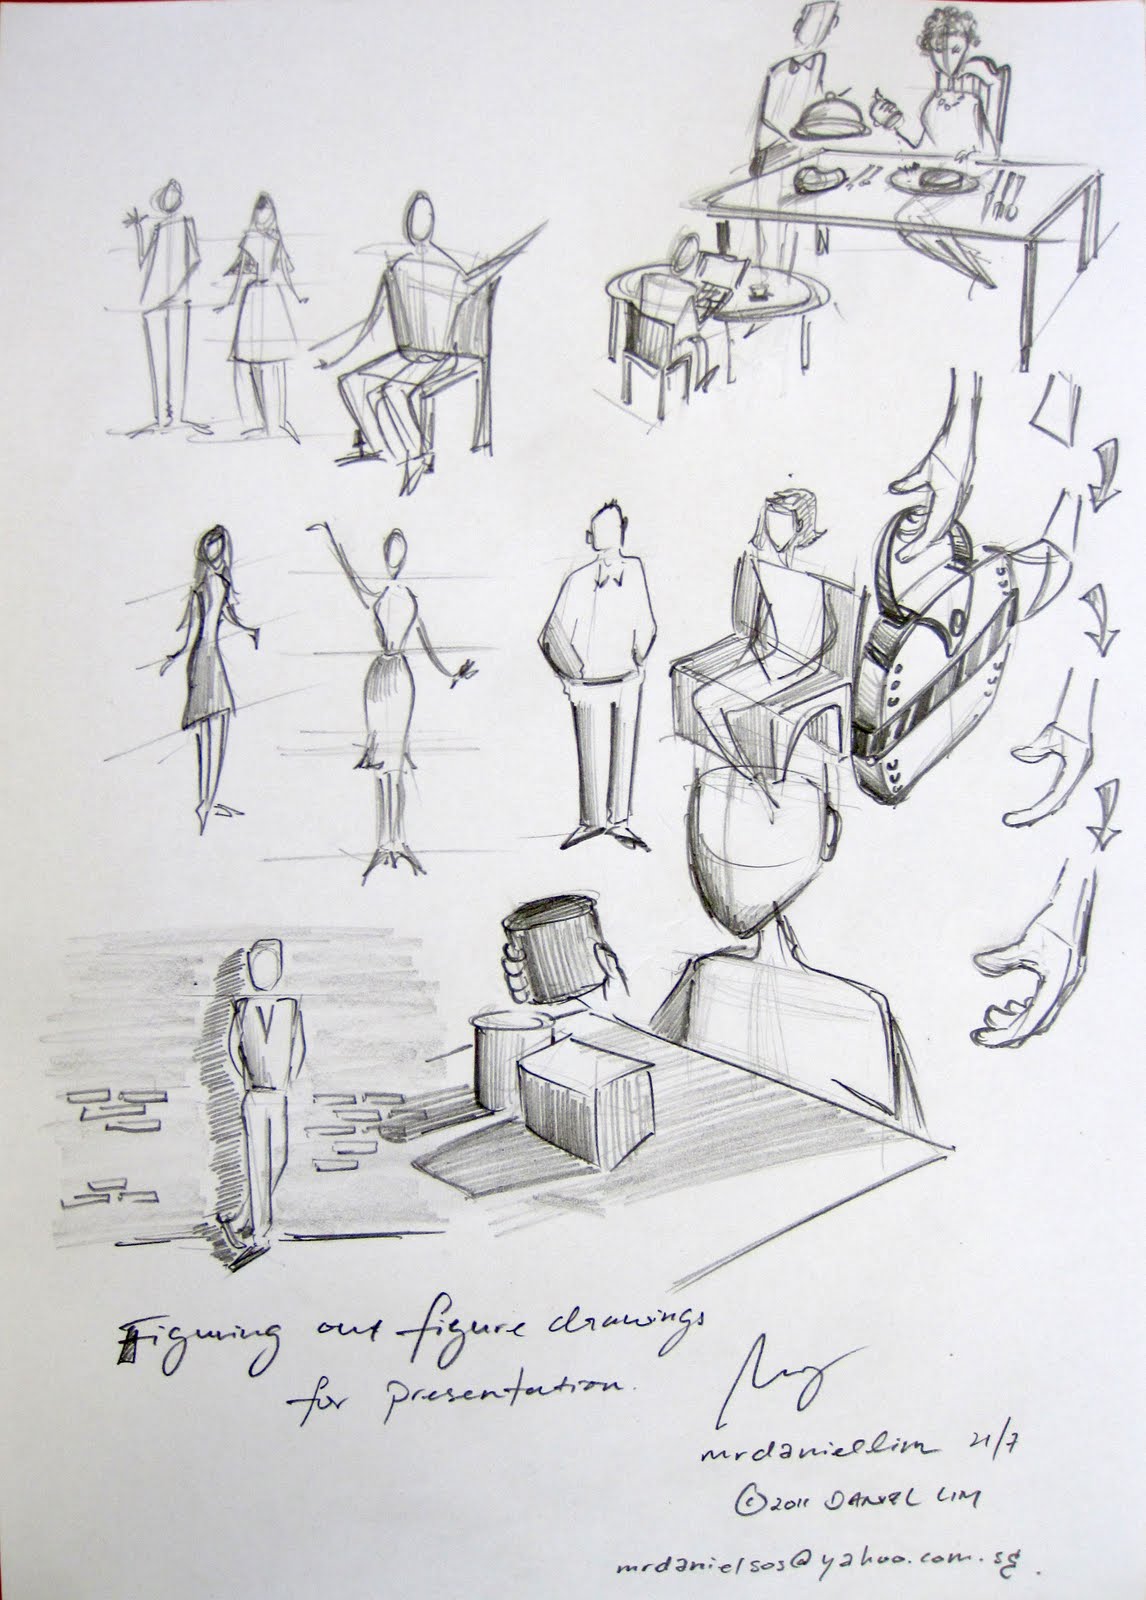 Figuring out figure drawings
for presentation.
mrdaniellim 21/7
©2011 DANIEL LIM
mrdanielsos@yahoo.com.sg.